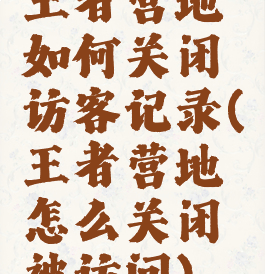 王者营地
如何关闭
访客记录(
王者营地
怎么关闭
被访问)